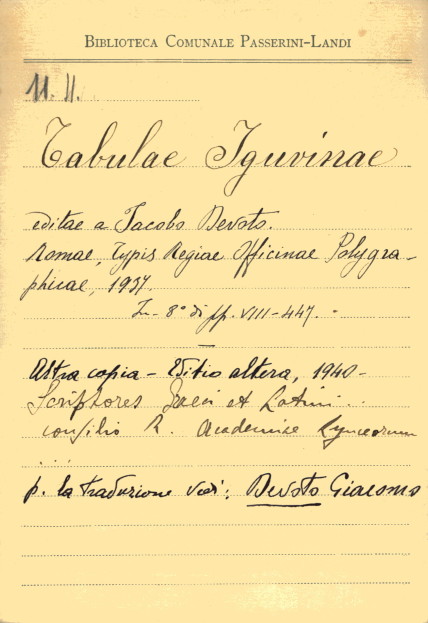 BIBLIOTECA COMUNALE PASSERINI-LANDI
11. II.
Tabulae Iguvinae
editae a Jacobo Devoto.
Romae, Typis Regiae Officinae Polygra-
phicae, 1937.
In-8° di pp. VIII-447.
Altra copia - Editio altera, 1940-
Scriptores Graeci et Latini ..
consilio R. Academiae Lynceorum
...
p. la traduzione vedi: Devoto Giacomo